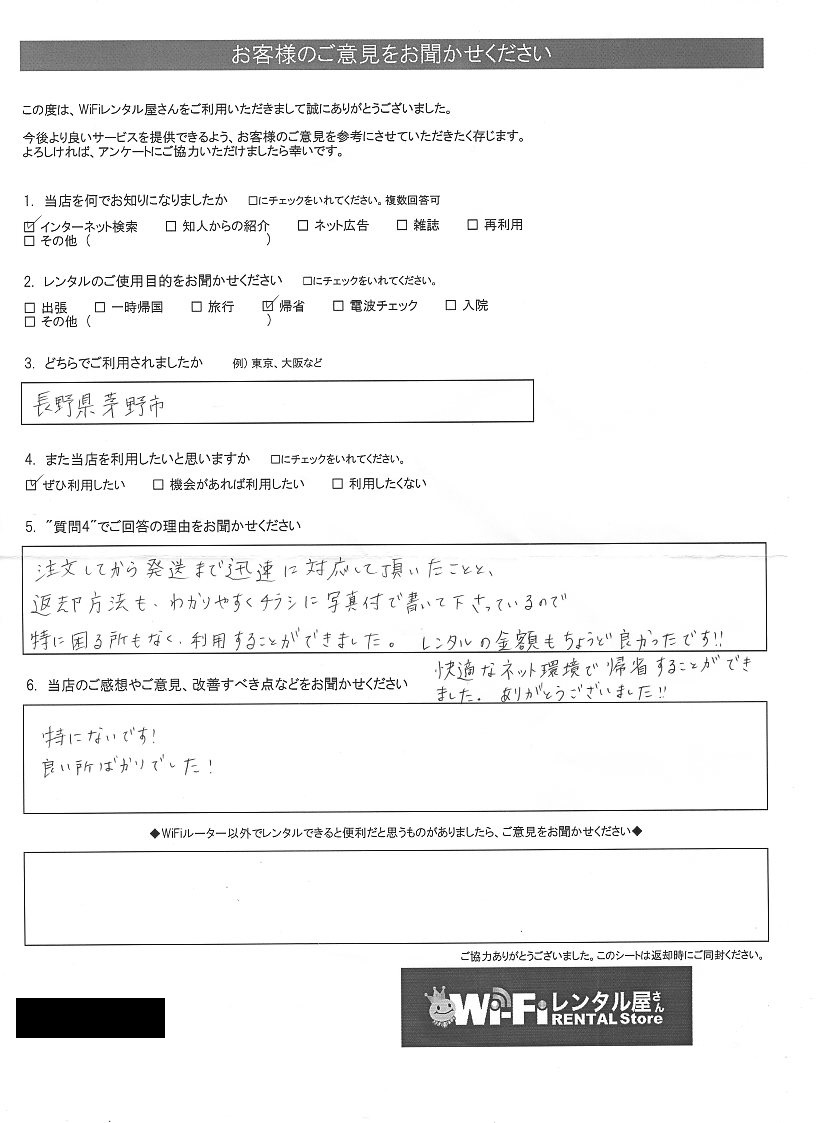 お客様のご意見をお聞かせください
この度は、WiFiレンタル屋さんをご利用いただきまして誠にありがとうございました。
今後より良いサービスを提供できるよう、お客様のご意見を参考にさせていただきたく存じます。
よろしければ、アンケートにご協力いただけましたら幸いです。
1. 当店を何でお知りになりましたか □にチェックをいれてください。複数回答可
☑インターネット検索 □ 知人からの紹介 □ ネット広告 □ 雑誌 □ 再利用
□ その他 ( )
2. レンタルのご使用目的をお聞かせください □にチェックをいれてください。
□ 出張 □ 一時帰国 □ 旅行 ☑帰省 □ 電波チェック □ 入院
□ その他 ( )
3. どちらでご利用されましたか 例) 東京、大阪など
長野県茅野市
4. また当店を利用したいと思いますか □にチェックをいれてください。
☑ぜひ利用したい □ 機会があれば利用したい □ 利用したくない
5. "質問4"でご回答の理由をお聞かせください
注文してから発送まで迅速に対応して頂いたことと、
返却方法も、わかりやすくチラシに写真付で書いて下さっているので
特に困る所もなく、利用することができました。 レンタルの金額もちょうど良かったです!!
快適なネット環境で帰省することができ
ました。ありがとうございました!!
6. 当店のご感想やご意見、改善すべき点などをお聞かせください
特にないです!
良い所ばかりでした!
◆WiFiルーター以外でレンタルできると便利だと思うものがありましたら、ご意見をお聞かせください◆
ご協力ありがとうございました。このシートは返却時にご同封ください。
Wi-Fiレンタル屋さん
RENTAL Store